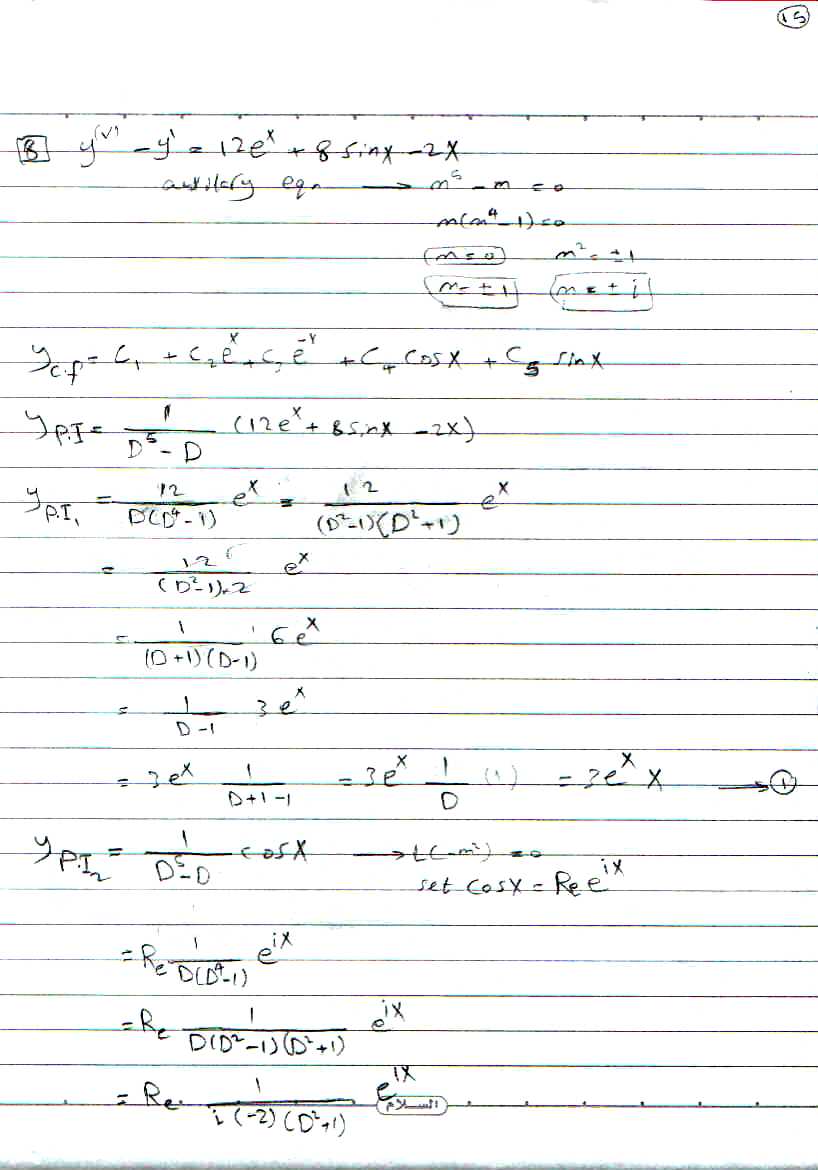 15
8 y^(V) - y' = 12e^x + 8 sinx - 2x
auxilary eqn → m^5 - m = 0
m(m^4 - 1) = 0
m = 0 m^2 = ±1
m = ±1 m = ± i
y_C.F = C_1 + C_2 e^x + C_3 e^-x + C_4 cosx + C_5 sinx
y_P.I = 1/(D^5 - D) (12e^x + 8 sinx - 2x)
y_P.I_1 = 12/(D(D^4 - 1)) e^x = 12/((D^2-1)(D^2+1)) e^x
= 12 6/((D^2-1)·2) e^x
= 1/((D+1)(D-1)) 6e^x
= 1/(D-1) 3e^x
= 3e^x 1/(D+1-1) = 3e^x 1/D (1) = 3e^x x → ①
y_P.I_2 = 1/(D^5-D) cosx → L(-m^2) = 0
set cosx = Re e^ix
= Re 1/(D(D^4-1)) e^ix
= Re 1/(D(D^2-1)(D^2+1)) e^ix
= Re 1/(i(-2)(D^2+1)) e^ix
السلام